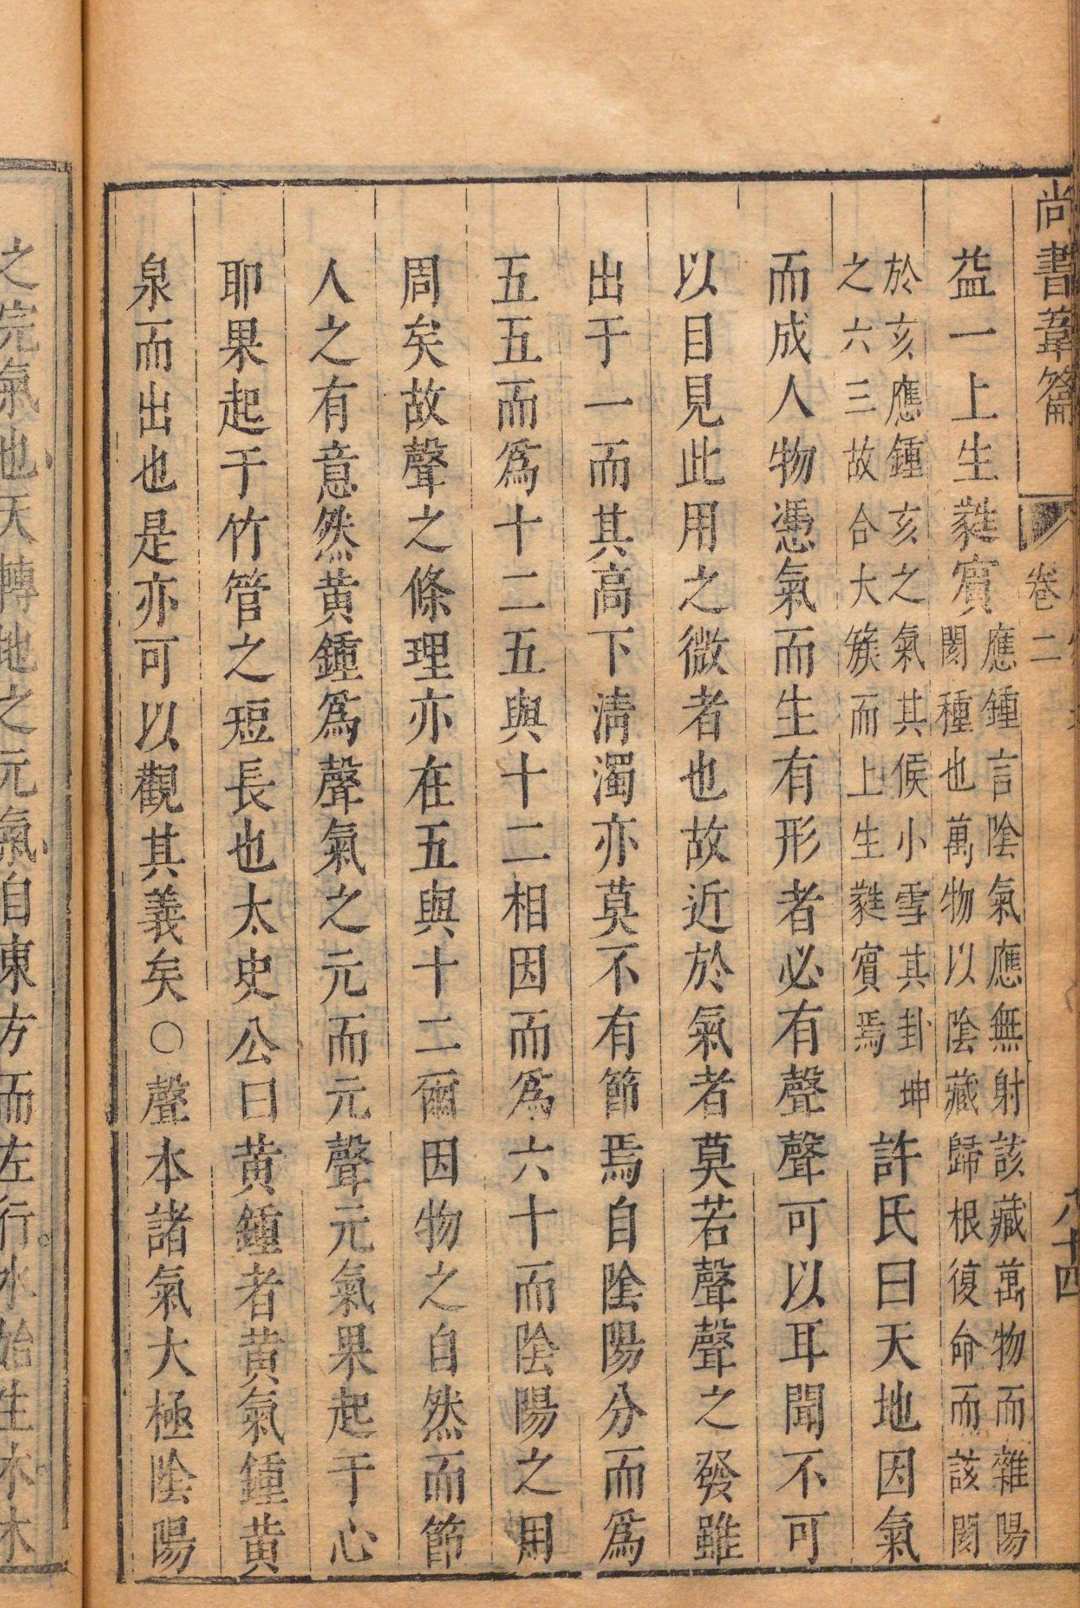 尚書葦籥
卷二
八十四
益一上生蕤賓應鍾言陰氣應無射該藏萬物而雜陽
閡種也萬物以陰藏歸根復命而該閡
於亥應鍾亥之氣其候小雪其卦坤
之六三故合大簇而上生蕤賓焉許氏曰天地因氣
而成人物憑氣而生有形者必有聲聲可以耳聞不可
以目見此用之微者也故近於氣者莫若聲聲之發雖
出于一而其高下淸濁亦莫不有節焉自陰陽分而爲
五五而爲十二五與十二相因而爲六十而陰陽之用
周矣故聲之條理亦在五與十二爾因物之自然而節
人之有意然黄鍾爲聲氣之元而元聲元氣果起于心
耶果起于竹管之短長也太史公曰黄鍾者黄氣鍾黄
泉而出也是亦可以觀其義矣○聲本諸氣大極陰陽
之完氣也天轉地之元氣自東方而左行水始生木木